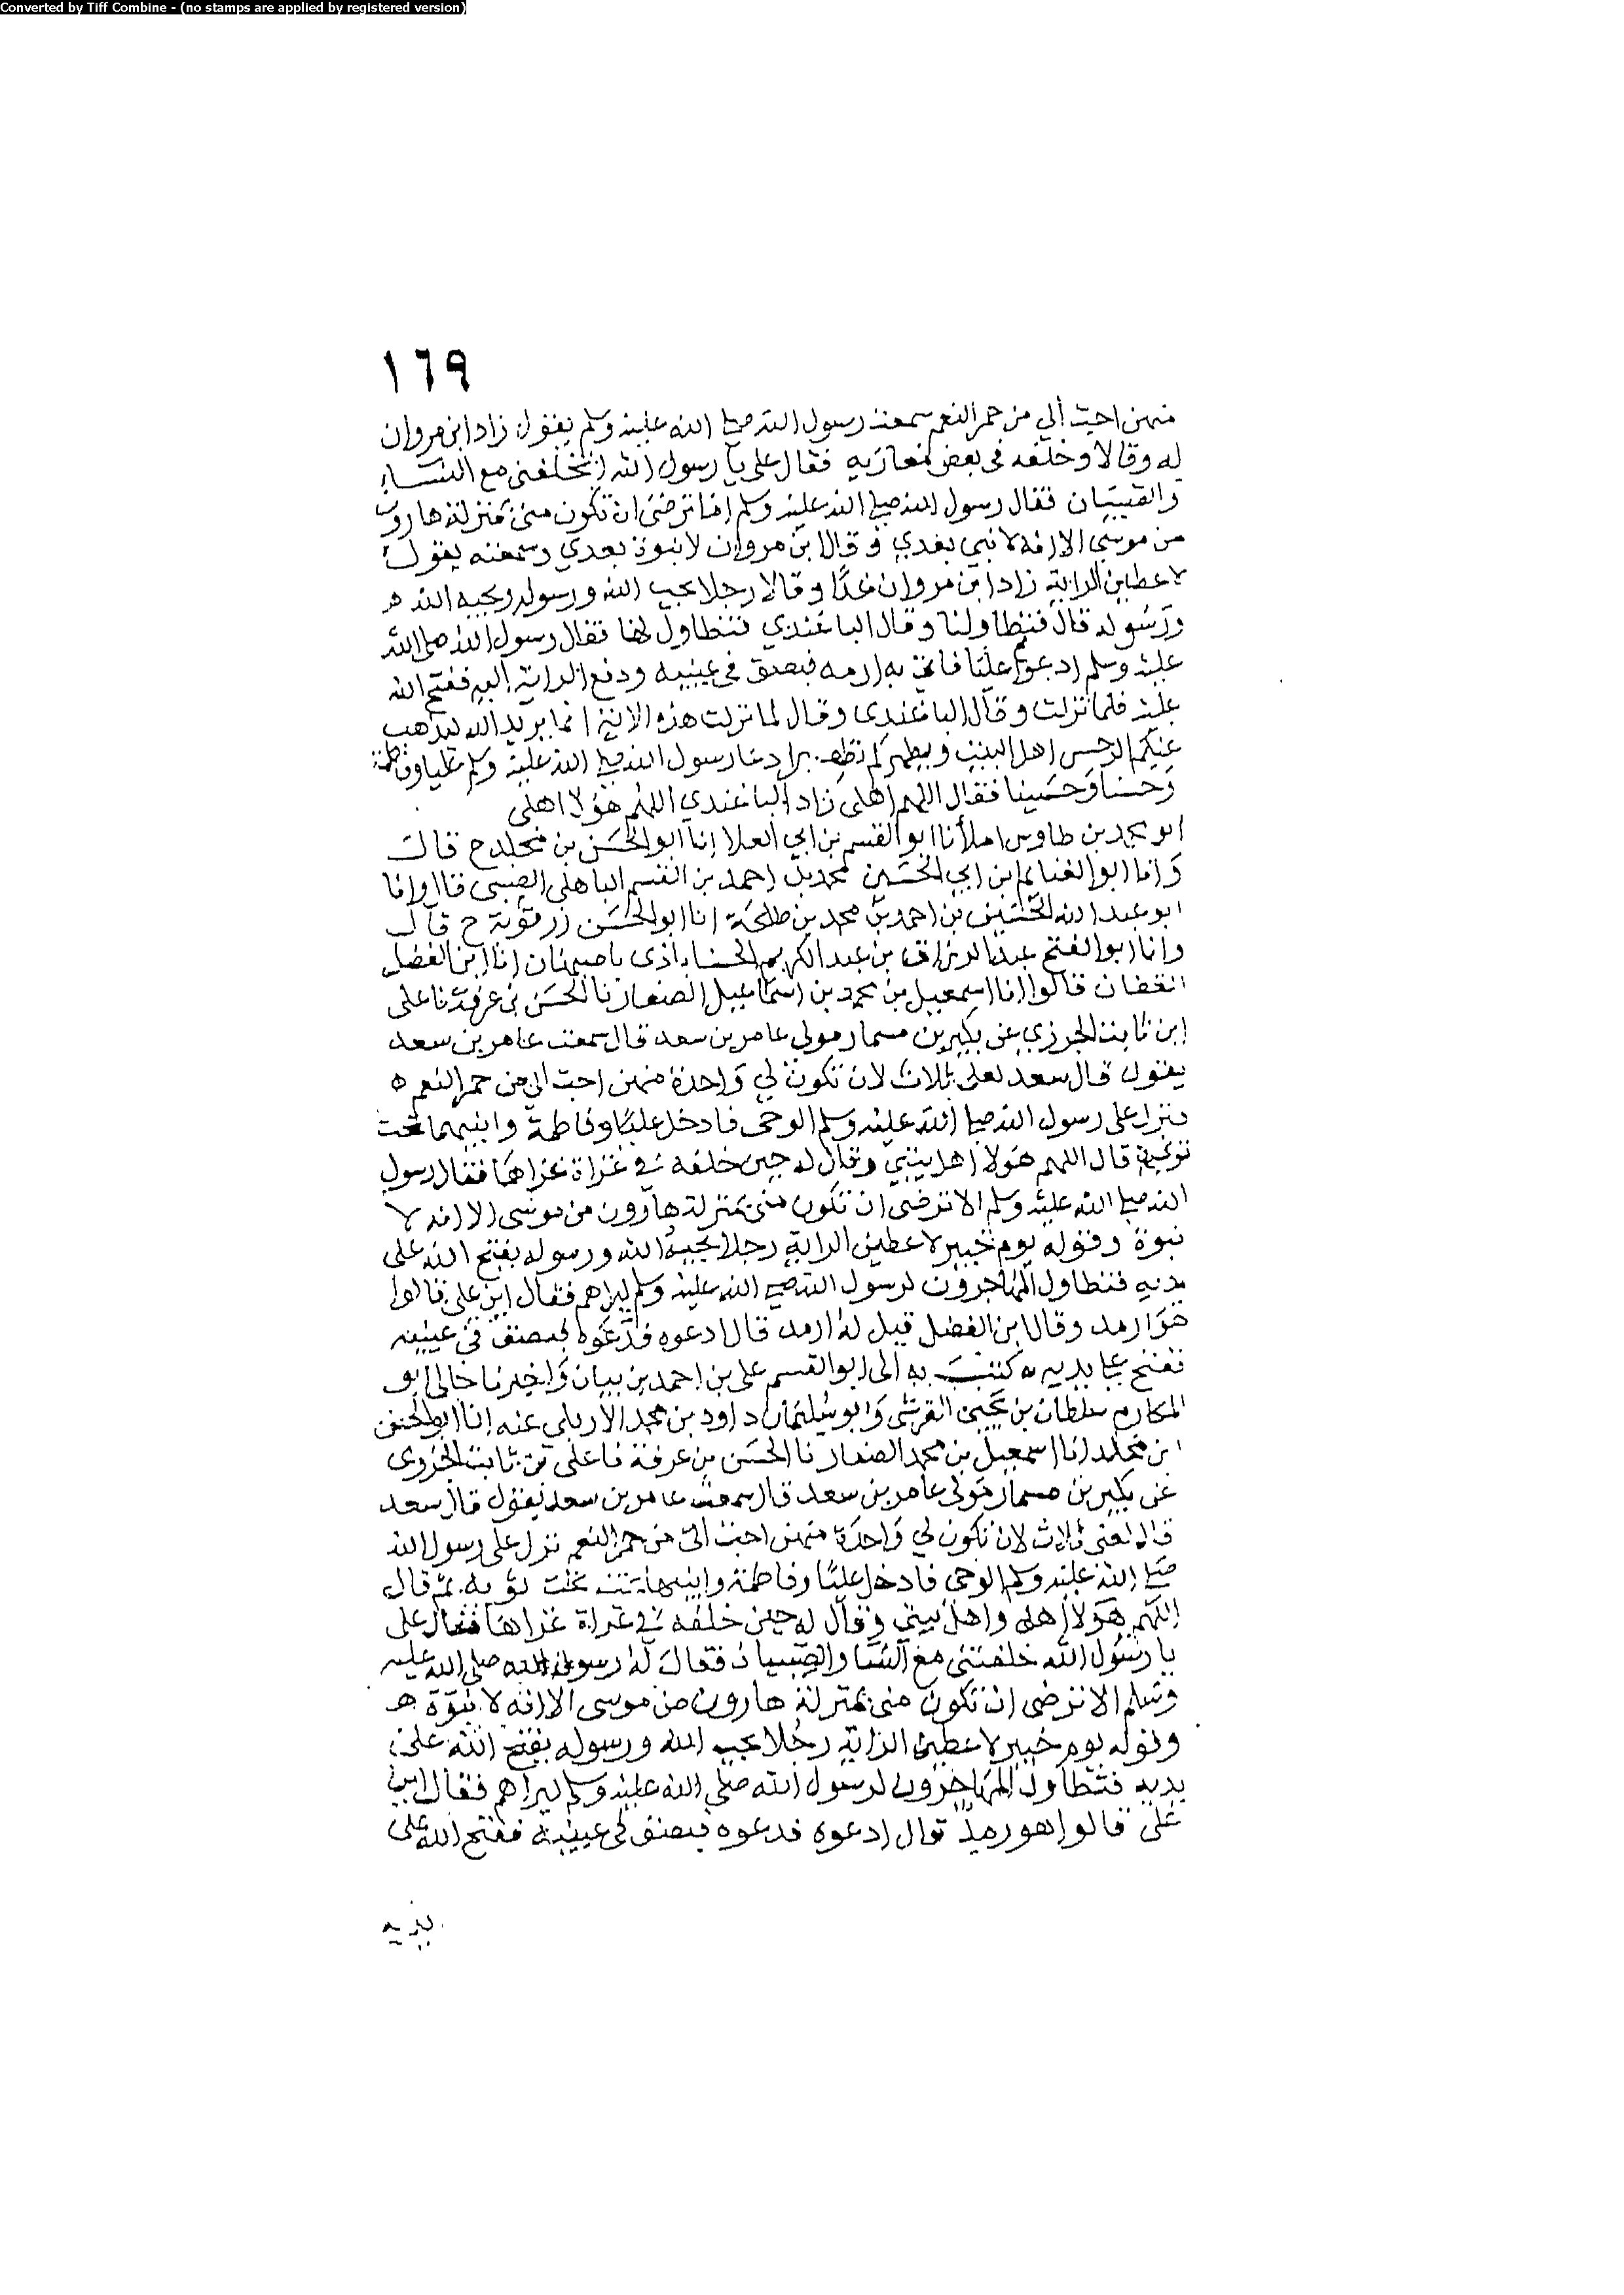 Converted by Tiff Combine - (no stamps are applied by registered version)
١٦٩
منهن احب الي من حمر النعم سمعت رسول الله صلى الله عليه وسلم يقول زاد ابن مروان
له وقالا وخلفه في بعض مغازيه فقال علي يا رسول الله اتخلفني مع النساء
والصبيان فقال رسول الله صلى الله عليه وسلم اما ترضى ان تكون مني بمنزلة هارون
من موسى الا انه لا نبي بعدي وقال ابن مروان لا نبوة بعدي وسمعته يقول
لاعطين الراية زاد ابن مروان غدا وقالا رجلا يحب الله ورسوله ويحبه الله
ورسوله قال فتطاولنا وقال الباغندي فتطاول لها فقال رسول الله صلى الله
عليه وسلم ادعوا عليا فاتي به ارمد فبصق في عينيه ودفع الراية اليه ففتح الله
عليه فلما نزلت وقال الباغندي وقال لما نزلت هذه الاية انما يريد الله ليذهب
عنكم الرجس اهل البيت ويطهركم تطهيرا دعا رسول الله صلى الله عليه وسلم عليا وفاطمة
وحسنا وحسينا فقال اللهم اهلي زاد الباغندي اللهم هؤلا اهلي
ابو محمد بن طاوس املا انا ابو القسم بن ابي العلا انا ابو الحسن بن مخلد ح قال
وانا ابو الغنايم ابن ابي الحسين محمد بن احمد بن القسم الباهلي الضبي قالا وانا
ابو عبد الله الحسين بن احمد بن محمد بن طلحة انا ابو الحسن زرقوية ح قال
وانا ابو الفتح عبد الرزاق بن عبد الكريم الحسناباذي باصبهان انا ابن الفضل
القفان قالوا انا اسمعيل بن محمد بن اسماعيل الصفار نا الحسن بن عرفة نا علي
ابن ثابت الجزري عن بكير بن مسمار مولى عامر بن سعد قال سمعت عامر بن سعد
يقول قال سعد لعلي ثلاث لان تكون لي واحدة منهن احب الي من حمر النعم ه
نزل على رسول الله صلى الله عليه وسلم الوحي فادخل عليا وفاطمة وابنيهما تحت
ثوبه ثم قال اللهم هولا اهل بيتي وقال له حين خلفه في غزاة غزاها فقال رسول
الله صلى الله عليه وسلم الا ترضى ان تكون مني بمنزلة هارون من موسى الا انه لا
نبوة وقوله يوم خيبر لاعطين الراية رجلا يحبه الله ورسوله يفتح الله على
يديه فتطاول المهاجرون لرسول الله صلى الله عليه وسلم ليراهم فقال اين علي قالوا
هو ارمد وقال ابن الفضل قيل له ارمد قال ادعوه فدعوه فبصق في عينيه
ففتح على يديه ه كتب به الى ابو القسم علي بن احمد بن بيان واخبرنا خالي ابو
المكارم سلطان بن يحيى القرشي وابو سليمان داود بن محمد الاربلي عنه انا ابو الحسن
ابن مخلد انا اسمعيل بن محمد الصفار نا الحسن بن عرفة نا علي بن ثابت الجزري
عن بكير بن مسمار مولى عامر بن سعد قال سمعت عامر بن سعد يقول قال سعد
قال لعلي ثلاث لان تكون لي واحدة منهن احب الي من حمر النعم نزل على رسول الله
صلى الله عليه وسلم الوحي فادخل عليا وفاطمة وابنيهما تحت ثوبه ثم قال
اللهم هولا اهلي واهل بيتي وقال له حين خلفه في غزاة غزاها فقال علي
يا رسول الله خلفتني مع النسا والصبيان فقال له رسول الله صلى الله عليه
وسلم الا ترضى ان تكون مني بمنزلة هارون من موسى الا انه لا نبوة
وقوله يوم خيبر لاعطين الراية رجلا يحب الله ورسوله يفتح الله على
يديه فتطاول المهاجرون لرسول الله صلى الله عليه وسلم ليراهم فقال اين
علي قالوا هو رمد قال ادعوه فدعوه فبصق في عينيه ففتح الله على
يديه